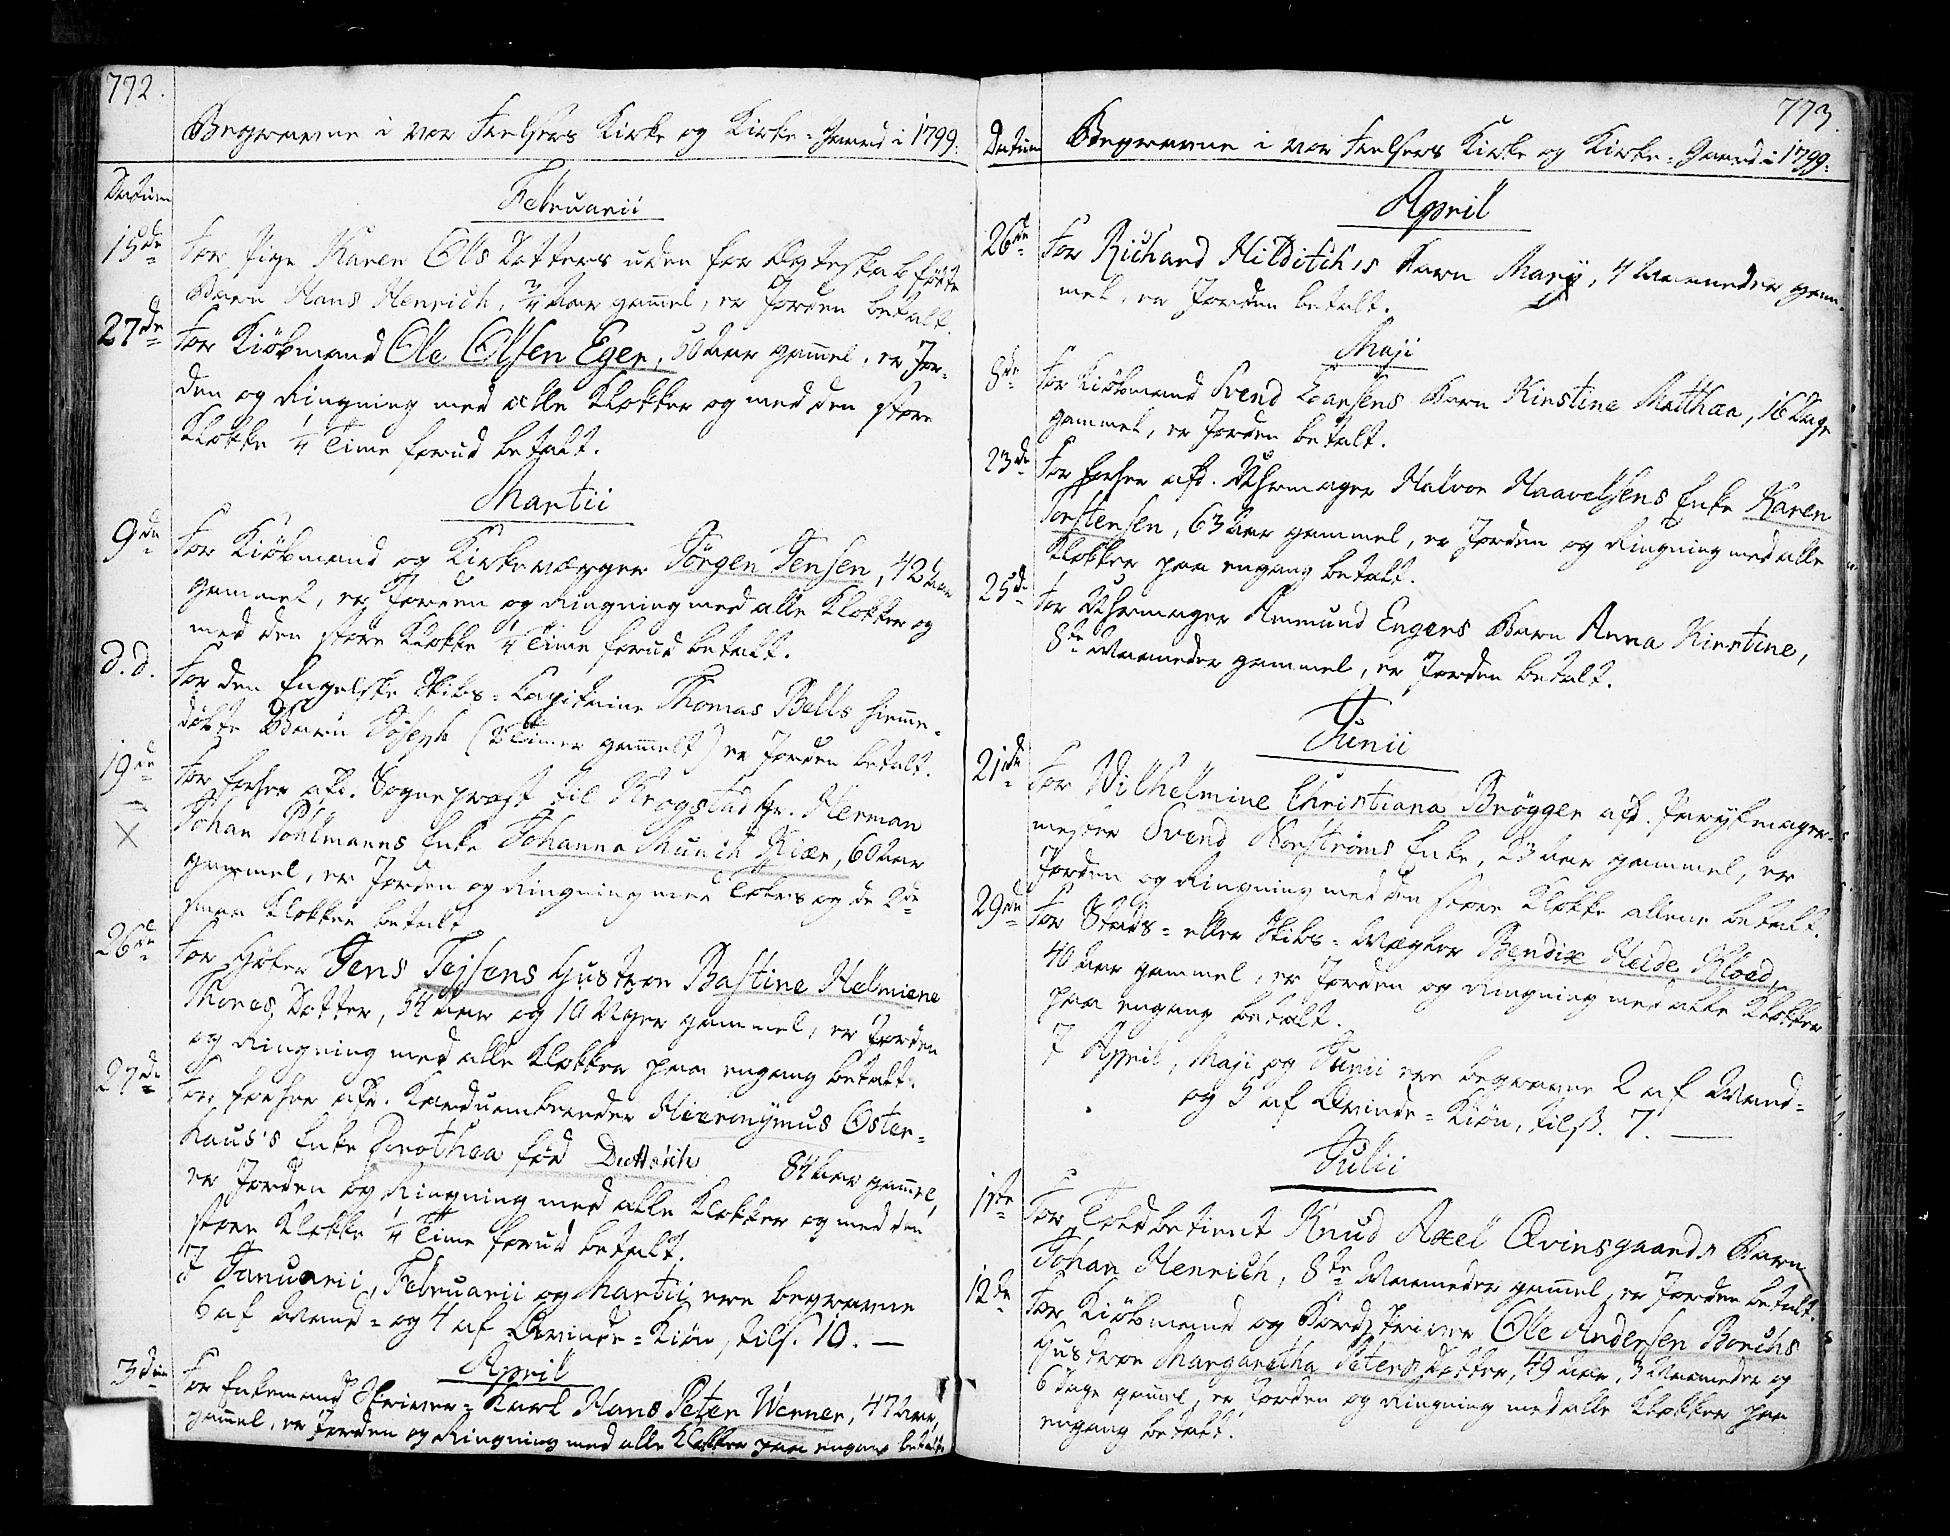 772.
Begravne i vor Frelsers Kirke og Kirke=Gaard i 1799.
Datum
Februarii
15de For Pige Karen Ols Datters uden for Ægteskab fødte
Barn Hans Henrich, 3/4 Aar gam̅el, er Jorden betalt.
27de For Kiøbmand Ole Olsen Eger, 50 Aar gam̅el, er Jor-
den og Ringning med alle Klokker og med den store
Klokke 1/4 Time forud betalt.
Martii
9de For Kiøbmand og Kirkeværger Jörgen Jensen, 42 Aar
gammel, er Jorden og Ringning med alle Klokker og
med den store Klokke 1/4 Time forud betalt.
d.d. For den Engelske Skibs=Capitaine Thomas Bells hiem̅e-
døbte Barn Joseph (2 Timer gam̅elt) er Jorden betalt.
19de For forhen afd. Sognepræst til Krogstad Hr. Herman
X Johan Pöhlmanns Enke Johanna Munch Kiær, 60 Aar
gammel, er Jorden og Ringning med og de 2de
smaa Klokker betalt
26de For Høker Jens Tejsens Hustroe Bastine Helmiene
Thores Datter, 54 Aar og 10 Uger gammel, er Jorden
og Ringning med alle Klokker paa engang betalt.
27de For forhen afd. Karduanbereder Hieronymus Oster-
haus's Enke Dorothea fød 84 Aar gam̅el,
er Jorden og Ringning med alle Klokker og med den
store Klokke 1/4 Time forud betalt.
I Januarii, Februarii og Martii ere begravne
6 af Mand= og 4 af Qvinde=Kiön, tils. 10. —
April
3die For Enkemand Skriver=Karl Hans Peter Werner, 47 Aar,
gam̅el, er Jorden og Ringning med alle Klokker paa engang betalt
773.
Datum Begravne i vor Frelsers Kirke og Kirke=Gaard i 1799.
April
26de For Richard Hilditch's Barn Mary, 4 Maaneder gam-
mel, er Jorden betalt.
Maji
8de For Kiøbmand Svend Larsens Barn Kirstine Matthea, 16 Dage
gammel, er Jorden betalt.
23de For forhen afd. Uhrmager Halvor Haavelsens Enke Karen
Torstensen, 63 Aar gammel, er Jorden og Ringning med alle
Klokker paa engang betalt.
25de For Uhrmager Ammund Engers Barn Anna Kirstine,
8te Maaneder gammel, er Jorden betalt.
Junii
21de For Wilhelmine Christiana Brögger afd. Parykmager-
mester Svend Norströms Enke, 23 Aar gammel, er
Jorden og Ringning med den store Klokke allene betalt.
29de For Stads= eller Skibs=Mægler Bendix Heide Kload,
40 Aar gammel, er Jorden og Ringning med alle Klokker
paa engang betalt.
I April, Maji og Junii ere begravne 2 af Mand=
og 5 af Qvinde=Kiön, tils. 7. —
Julii
1ste For Toldbetient Knud Axel Qvinsgaards Barn
Johan Henrich, 8te Maaneder gam̅el, er Jorden betalt.
12de For Kiøbmand og Ole Andersen Borchs
Hustroe Margaretha Peters Datter, 49 Aar, 3 Maaneder og
6 Dage gam̅el, er Jorden og Ringning med alle Klokker paa
engang betalt.